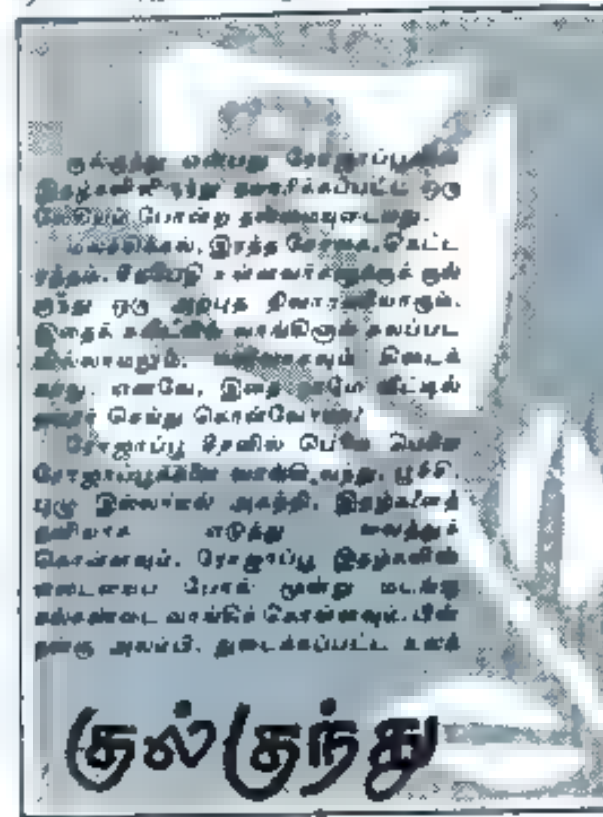 குல்குந்து என்பது ரோஜாப்பூவின்
ஒரு
போன்ற தன்மையுடையது.
மலச்சிக்கல், இரத்த சோகை, கெட்ட
ரத்தம், உள்ளவர்களுக்குக் குல்
குந்து ஒரு அற்புத நிவாரணியாகும்.
இதைக் கடையில் வாங்கினால் கலப்பட
கிடைக்
காது. எனவே, இதை நாமே வீட்டில்
செய்து கொள்வோமா!
ரோஜாப்பூ பெரிய பெரிய
ரோஜாப்பூக்களை வாங்கி வந்து, பூச்சி
புழு இல்லாமல் அகற்றி, இதழ்களைத்
தனியாக எடுத்து வைத்துக்
கொள்ளவும். ரோஜாப்பூ இதழ்களின்
எடையைப் போல் மூன்று மடங்கு
கல்கண்டை வாங்கிக் கொள்ளவும். பின்
நன்கு அலம்பி, துடைக்கப்பட்ட உலக்
குல்குந்து